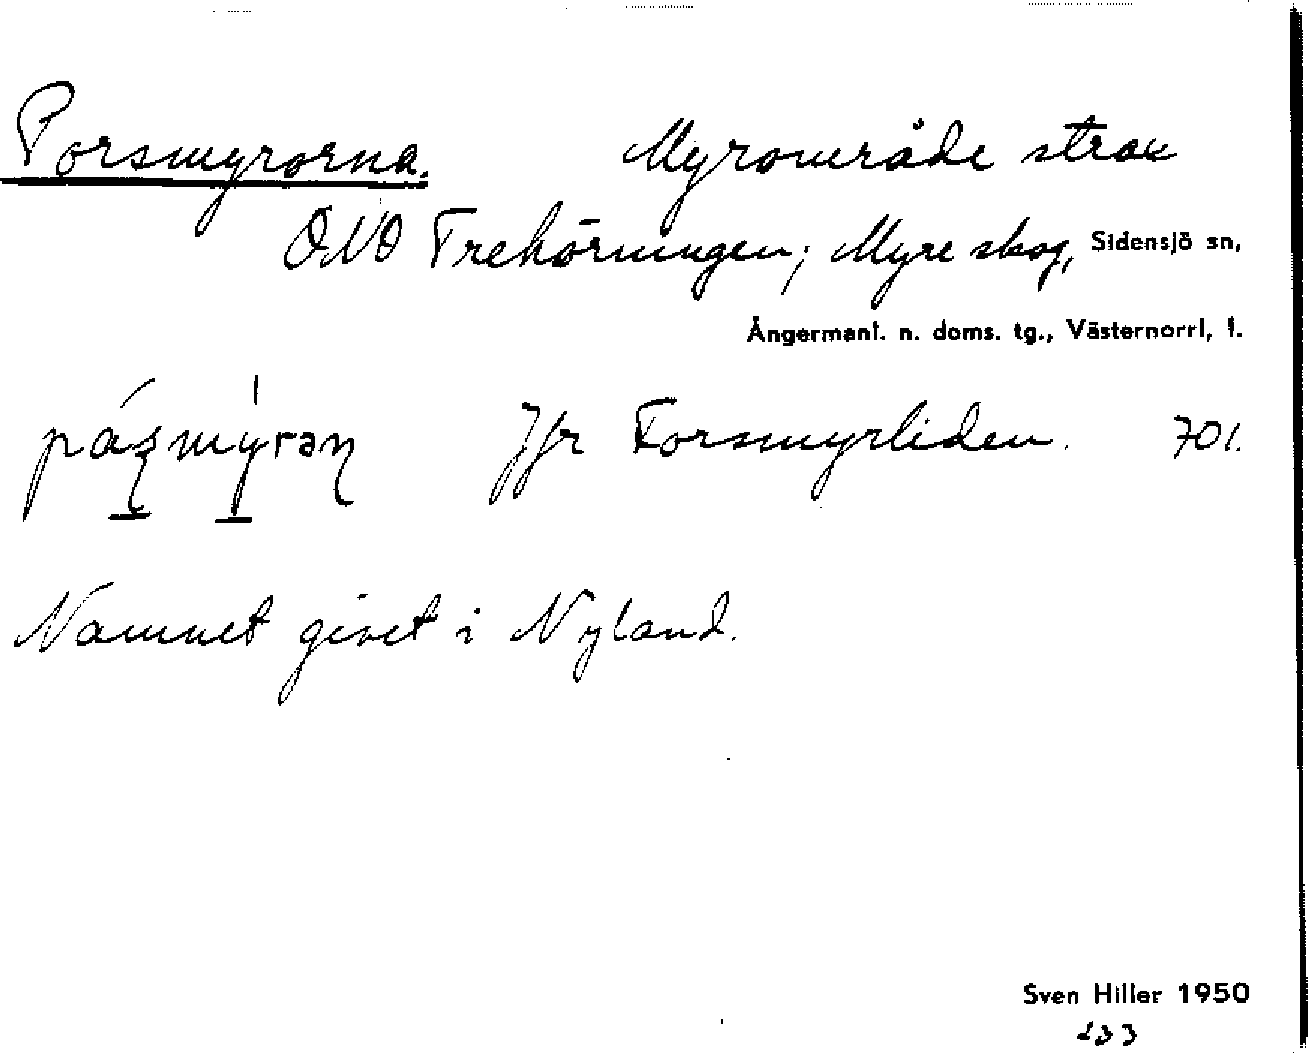 Porsmyrorna. Myrområde strax
ONO Trehörningen; Myre skog, Sidensjö sn,
Ångermanl. n. doms. tg., Västernorrl. l.
Jfr Forsmyrliden. 701.
Namnet givet i Nyland.
Sven Hiller 1950
233